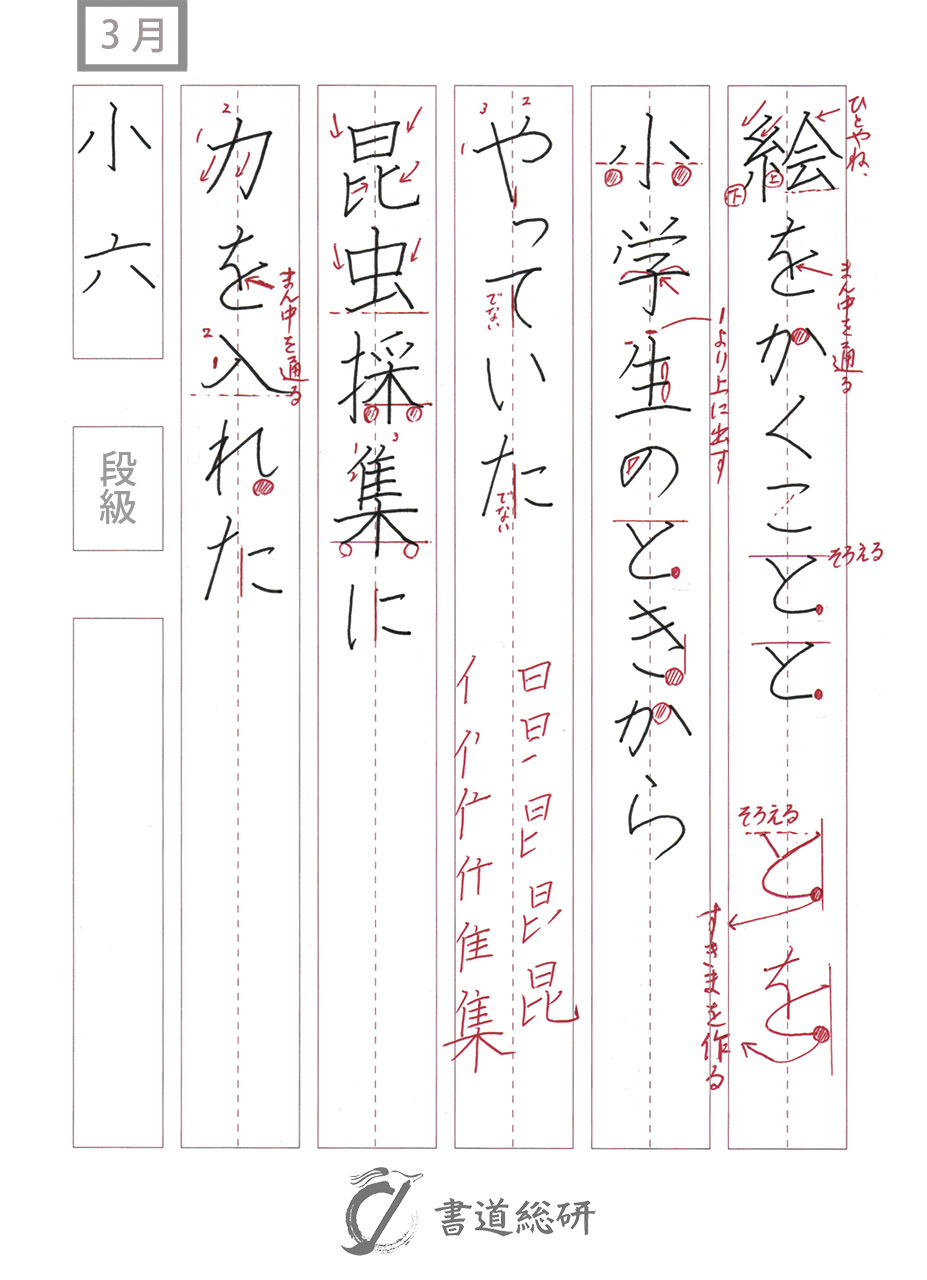 3月
絵をかくことと
ひとやね、
下
上
まん中を通る
そろえる
そろえる
とを
すきまを作る
小学生のときからら
より上に出す
やっていた
3
2
1
でない
でない
日
昆
集
昆虫採集に
1
2
3
力を入れた
1
2
まん中を通る
1
2
小六
段級
書道総研